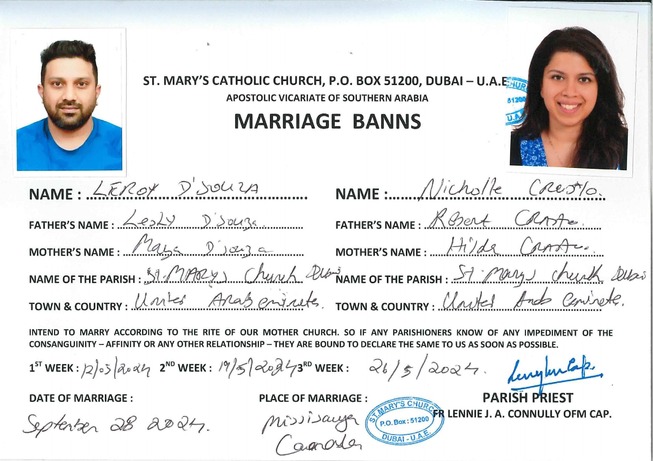 ST. MARY'S CATHOLIC CHURCH, P.O. BOX 51200, DUBAI – U.A.E
APOSTOLIC VICARIATE OF SOUTHERN ARABIA
MARRIAGE BANNS
NAME : LEROY D'SOUZA NAME : Nicholle CRASTO.
FATHER'S NAME : Lesly D'Souza. FATHER'S NAME : Robert CRASTO.
MOTHER'S NAME : D'souza MOTHER'S NAME : Hilda CRASTO.
NAME OF THE PARISH : St. MARYS Church Dubai NAME OF THE PARISH : St. Marys church Dubai
TOWN & COUNTRY : United Arab emirates. TOWN & COUNTRY : United Arab Emirate.
INTEND TO MARRY ACCORDING TO THE RITE OF OUR MOTHER CHURCH. SO IF ANY PARISHIONERS KNOW OF ANY IMPEDIMENT OF THE
CONSANGUINITY - AFFINITY OR ANY OTHER RELATIONSHIP – THEY ARE BOUND TO DECLARE THE SAME TO US AS SOON AS POSSIBLE.
1ST WEEK : 12/05/2024 2ND WEEK : 19/5/2024 3RD WEEK : 26/5/2024.
DATE OF MARRIAGE : PLACE OF MARRIAGE : PARISH PRIEST
September 28 2024. Mississauga FR LENNIE J. A. CONNULLY OFM CAP.
Canada
ST. MARY'S CHURCH
P.O. Box : 51200
DUBAI - U.A.E.
51200
U.A.E.